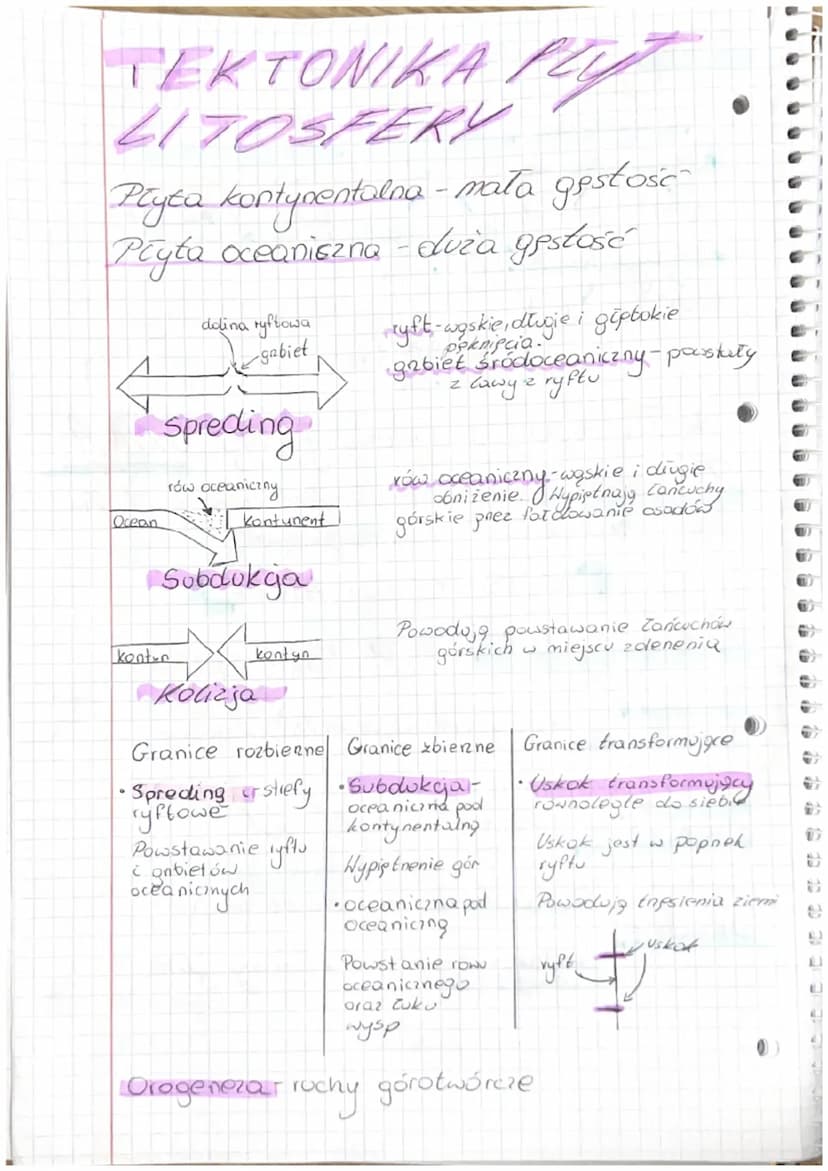 TEKTONIKA PŁYT
LITOSFERY
Płyta kontynentalna - mała gęstość
Płyta oceaniczna - duża gęstość
dolina ryftowa
grzbiet
Spreding
ryft - wąskie, długie i głębokie
pęknięcia.
grzbiet śródoceaniczny - powstały
z lawy z ryftu
rów oceaniczny
Ocean
Kontynent
Subdukcja
rów oceaniczny - wąskie i długie
obniżenie. Wypiętrzają łańcuchy
górskie przez fałdowanie osadów
kontyn
kontyn
Kolizja
Powodują powstawanie łańcuchów
górskich w miejscu zderzenia
Granice rozbieżne
• Spreding - strefy
ryftowe
Powstawanie ryftu
i grzbietów
oceanicznych
Granice zbieżne
• Subdukcja -
oceaniczna pod
kontynentalną
Wypiętrzenie gór
• oceaniczna pod
oceaniczną
Powstanie rowu
oceanicznego
oraz łuku
wysp
Granice transformujące
• Uskok transformujący
równoległe do siebie
Uskok jest w poprzek
ryftu
Powodują trzęsienia ziemi
uskok
ryft
Orogeneza - ruchy górotwórcze